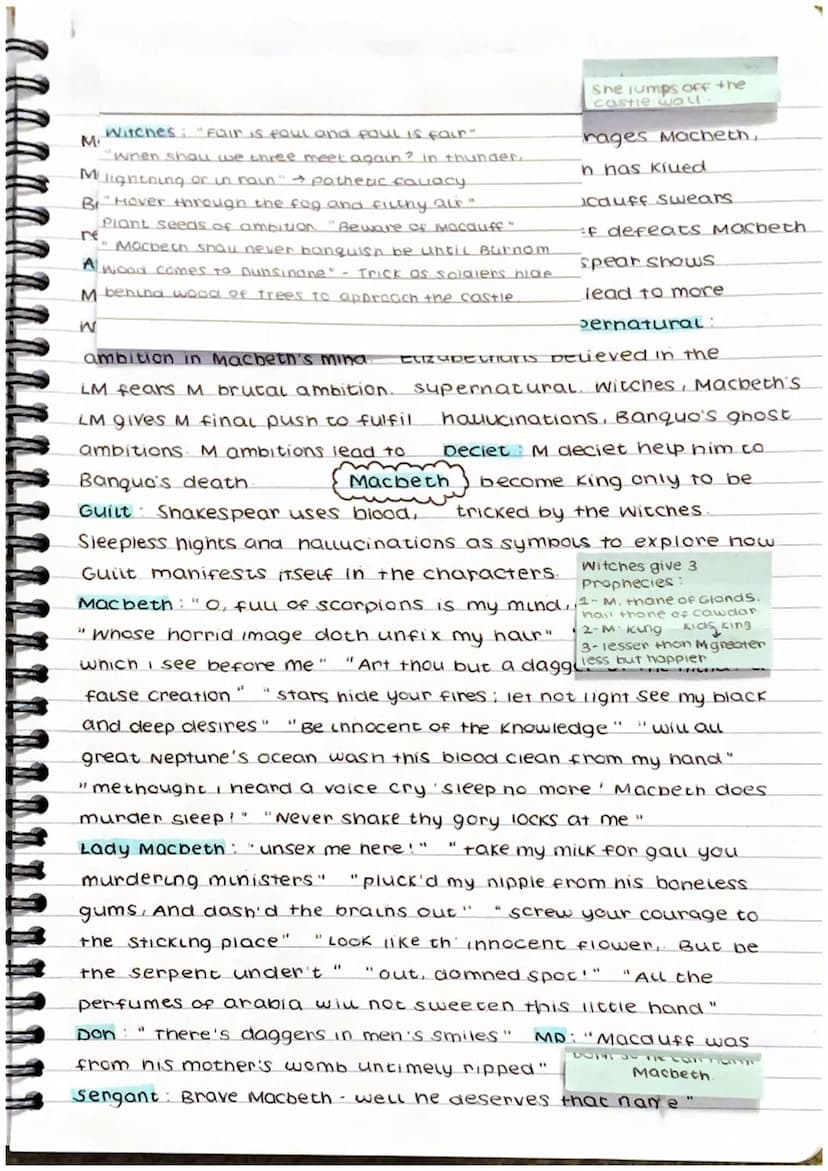 She jumps off the
castle wall.
Witches: "Fair is foul and foul is fair"
"When shall we three meet again? In thunder,
lightning or in rain" → pathetic fallacy
"Hover through the fog and filthy air"
Plant seeds of ambition "Beware of Macduff"
"Macbeth shall never banquish be until Burnom
Wood comes to Dunsinane" - Trick as soldiers hide
behind wood of trees to approach the castle.
rages Macbeth,
n has killed
cduff swears
f defeats Macbeth
spear shows
lead to more
pernatural:
ambition in Macbeth's mind Elizabethans believed in the
LM fears M brutal ambition. supernatural. Witches, Macbeth's
LM gives M final push to fulfil hallucinations, Banquo's ghost
ambitions. M ambitions lead to Deciet: M deciet help him to
Banquo's death. Macbeth become King only to be
Guilt: Shakespear uses blood, tricked by the Witches.
Sleepless nights and hallucinations as symbols to explore how
Guilt manifests itself in the characters.
Witches give 3
Prophecies:
1- M, thane of Glands.
hail thane of cawdar
2- M- King kids King
3- lesser than M greater
less but happier
Macbeth: "O, full of scorpions is my mind,
"Whose horrid image doth unfix my hair"
which i see before me" "Art thou but a dagg
false creation" "stars hide your fires; let not light see my black
and deep desires" "Be innocent of the knowledge" "will all
great Neptune's ocean wash this blood clean from my hand"
"methought i heard a voice cry 'sleep no more' Macbeth does
murder sleep!" "Never shake thy gory locks at me"
Lady Macbeth: "unsex me here!" "take my milk for gall you
murdering ministers" "pluck'd my nipple from his boneless
gums, And dash'd the brains out" "screw your courage to
the sticking place" "Look like th' innocent flower, But be
the serpent under't" "out, damned spot!" "All the
perfumes of arabia will not sweeten this little hand"
Don: "There's daggers in men's smiles" MD: "Macduff was
from his mother's womb untimely ripped"
Macbeth.
Sergant: Brave Macbeth - well he deserves that name"